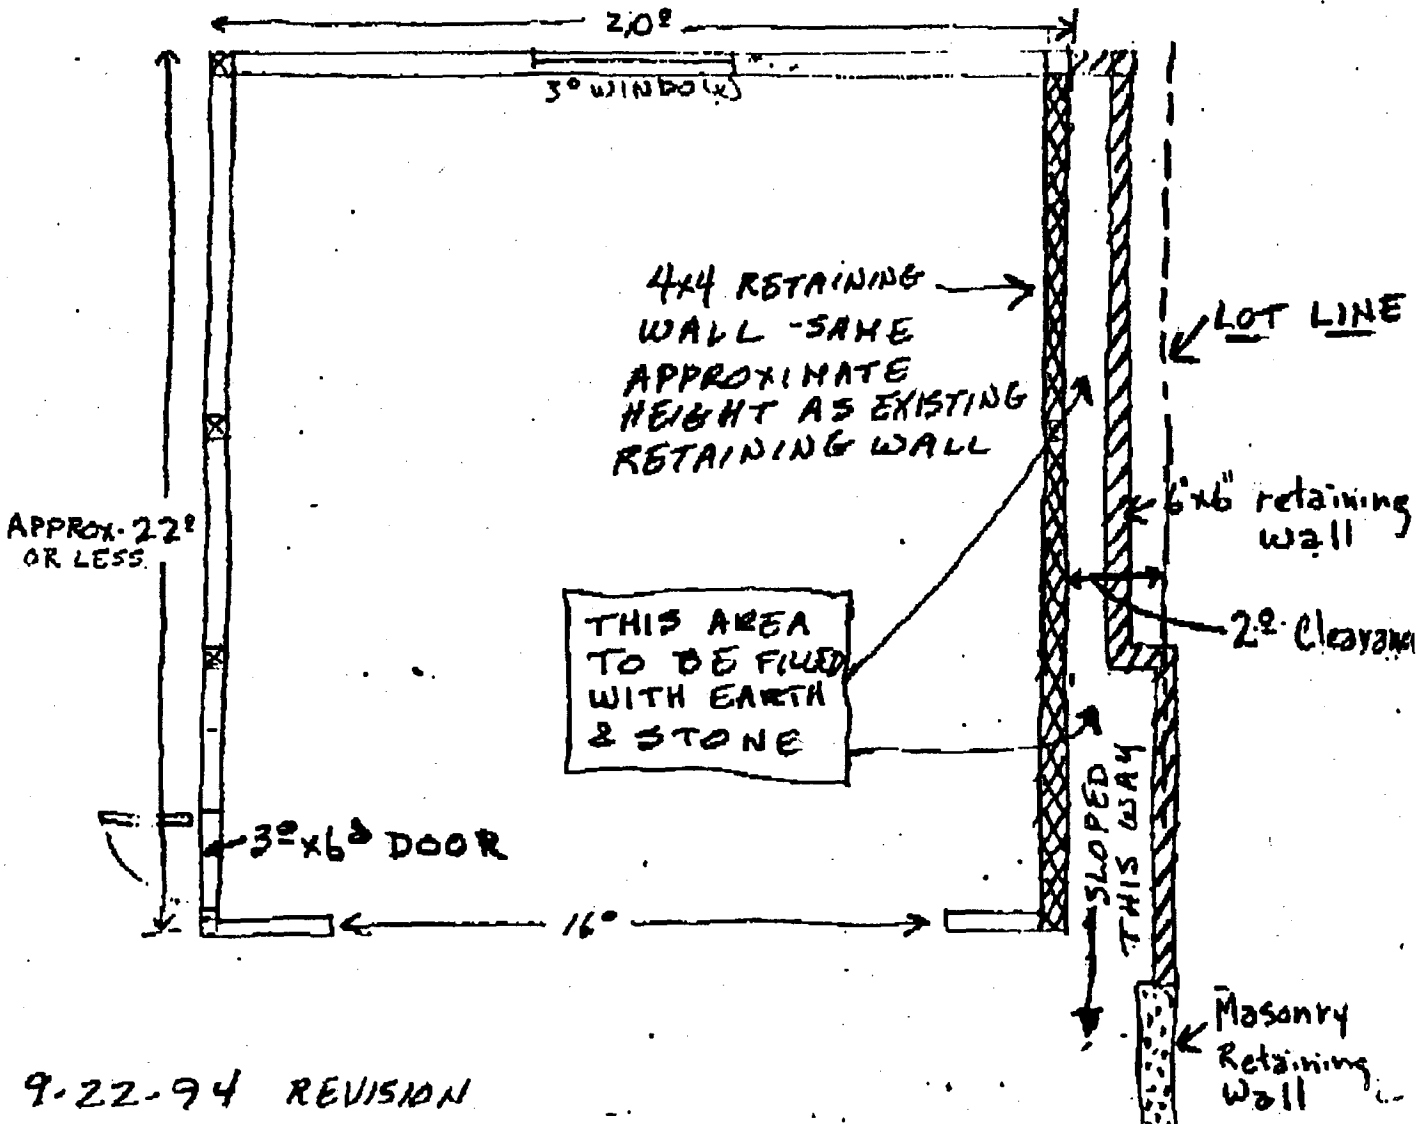 20º
3º WINDOW
4x4 RETAINING
WALL - SAME
APPROXIMATE
HEIGHT AS EXISTING
RETAINING WALL
LOT LINE
6"x6" retaining
wall
APPROX. 22º
OR LESS
THIS AREA
TO BE FILLED
WITH EARTH
& STONE
2º Clearanc
SLOPED
THIS WAY
3º x 6º DOOR
16º
Masonry
Retaining
Wall
9-22-94 REVISION